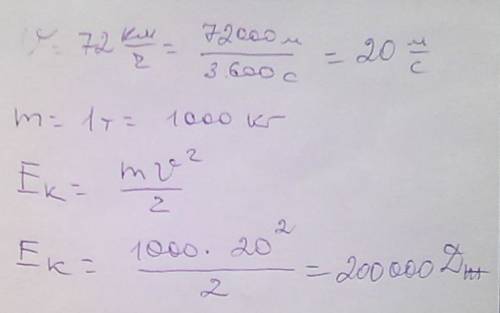 v = 72 км/ч = 72000 м / 3.600 с = 20 м/с
m = 1т = 1000 кг
Eк = mv²/2
Eк = 1000 · 20² / 2 = 200000 Дж